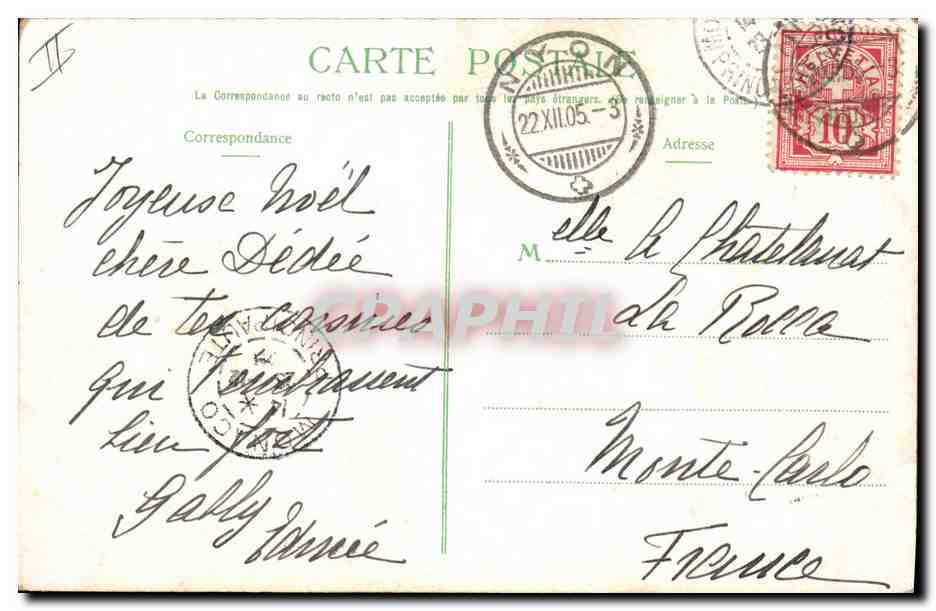 II
CARTE POSTALE
La Correspondance au recto n'est pas acceptée par tous les pays étrangers. (Se renseigner à la Poste)
Correspondance
Joyeuse Noël
chère Dédée
de tes cousines
qui t'embrassent
bien fort
Gably
Edmée
NYON
22.XII.05.-3
HELVETIA
10
Adresse
Melle A Chatelanat
La Rocca
Monte-Carlo
France
MONACO
PRINCIPAUTÉ
GRAPHIL